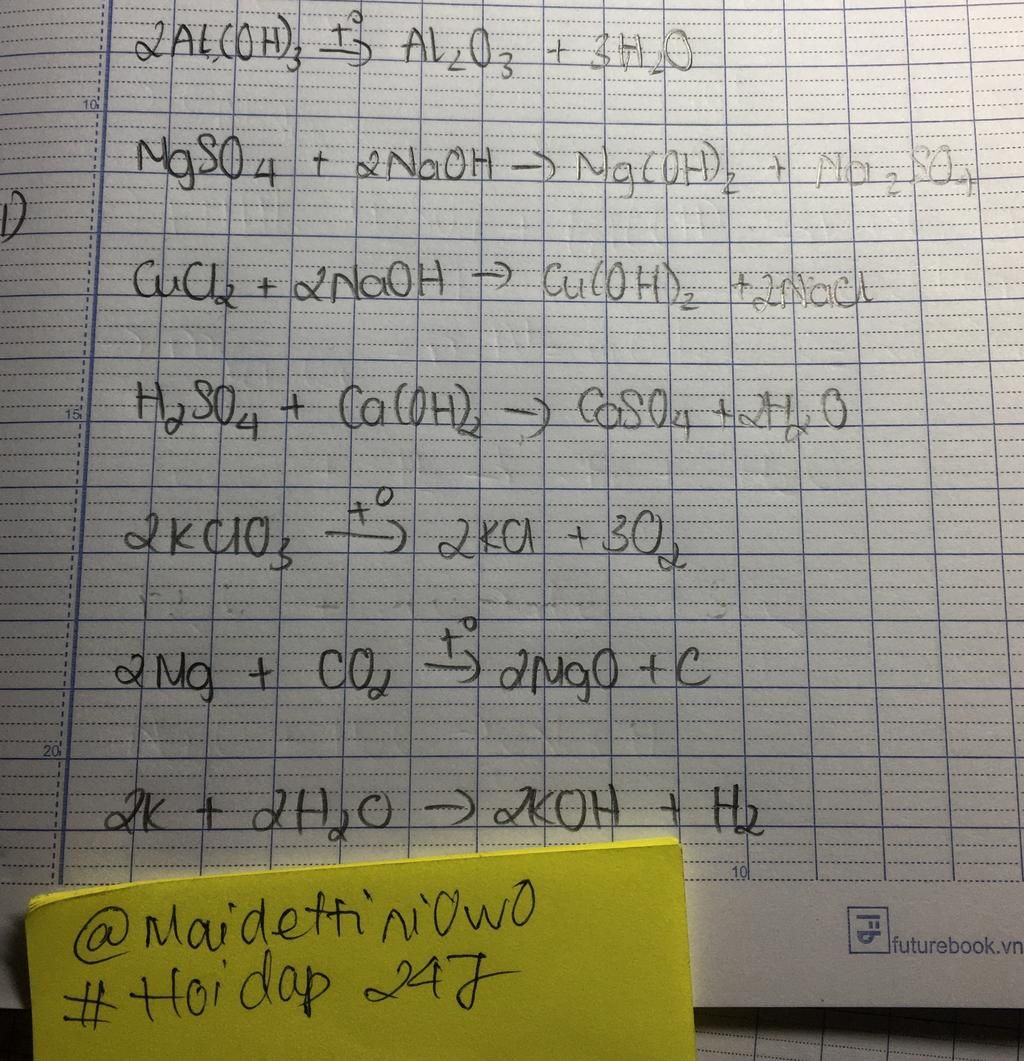 2Al(OH)₃ t⁰→ Al₂O₃ + 3H₂O
10
MgSO₄ + 2NaOH → Mg(OH)₂ + Na₂SO₄
1)
CuCl₂ + 2NaOH → Cu(OH)₂ + 2NaCl
15
H₂SO₄ + Ca(OH)₂ → CaSO₄ + 2H₂O
2KClO₃ t⁰→ 2KCl + 3O₂
2Mg + CO₂ t⁰→ 2MgO + C
20
2K + 2H₂O → 2KOH + H₂
10
@Maidettini0w0
#Hoidap 247
futurebook.vn